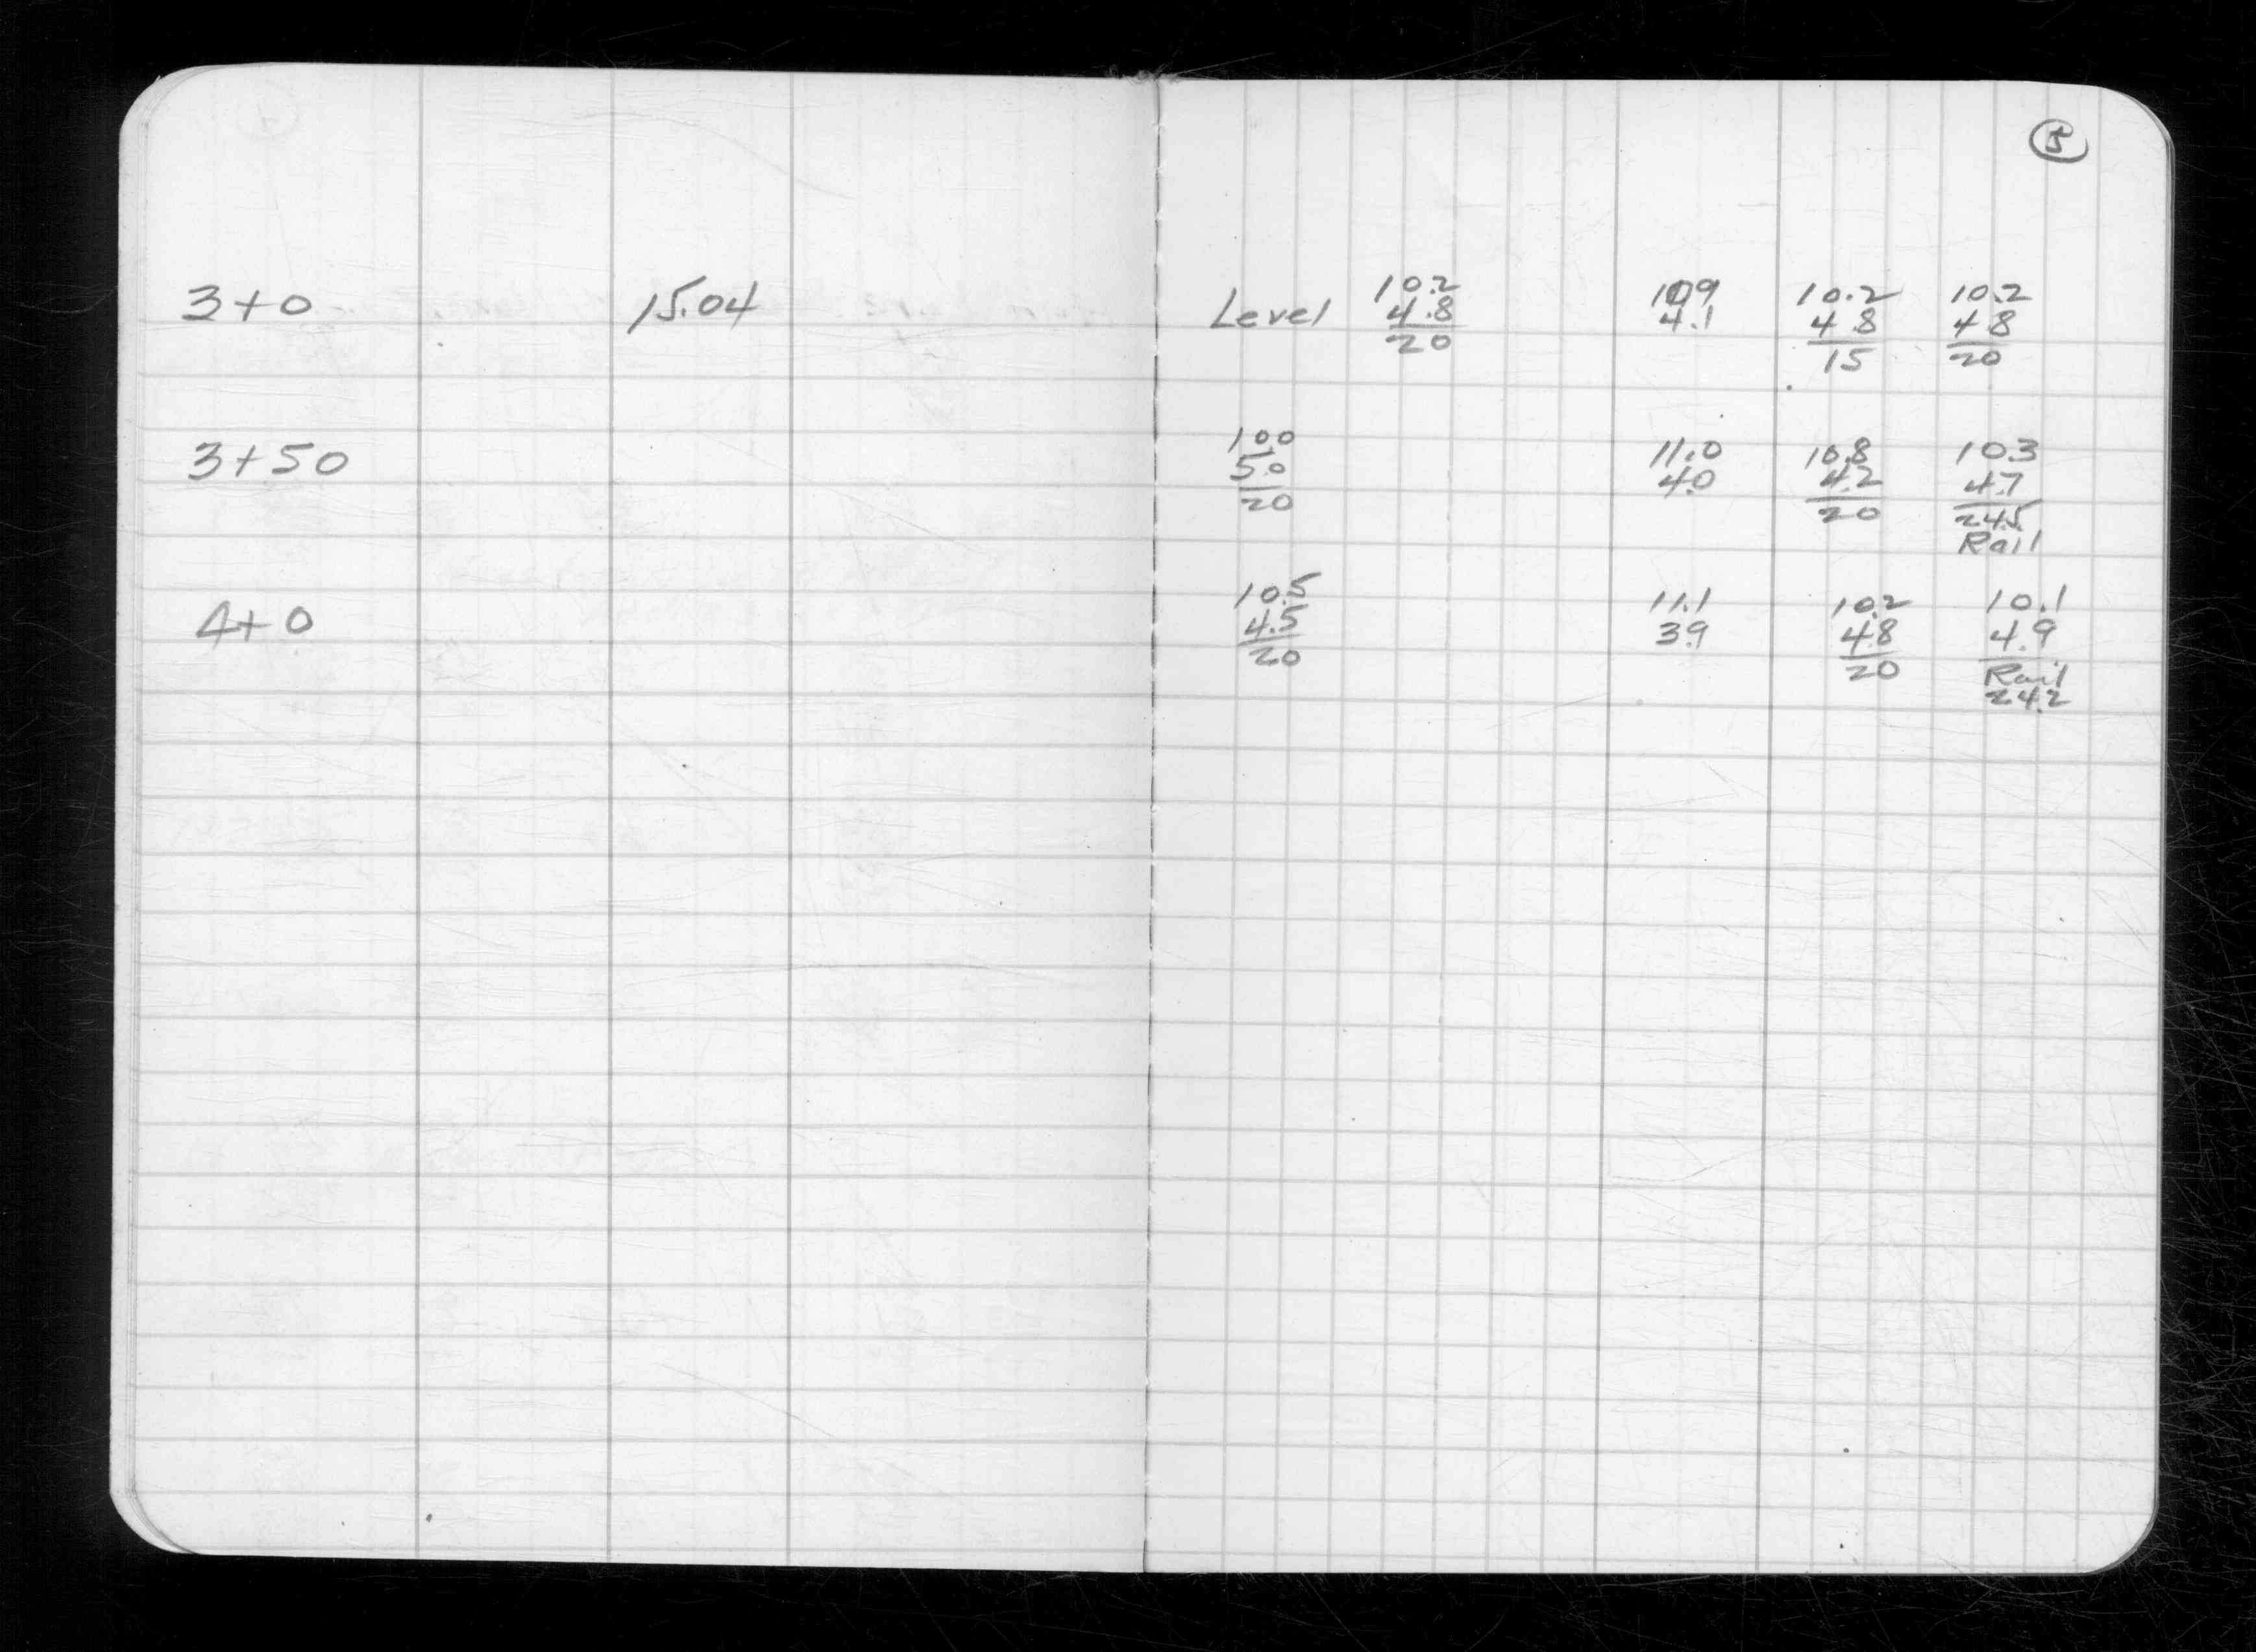 5
3+0 15.04 Level 10.2 10.9 10.2 10.2
4.8 4.1 4.8 4.8
20 15 20
3+50 10.0 11.0 10.8 10.3
5.0 4.0 4.2 4.7
20 20 24.5
Rail
4+0 10.5 11.1 10.2 10.1
4.5 3.9 4.8 4.9
20 20 Rail
24.2